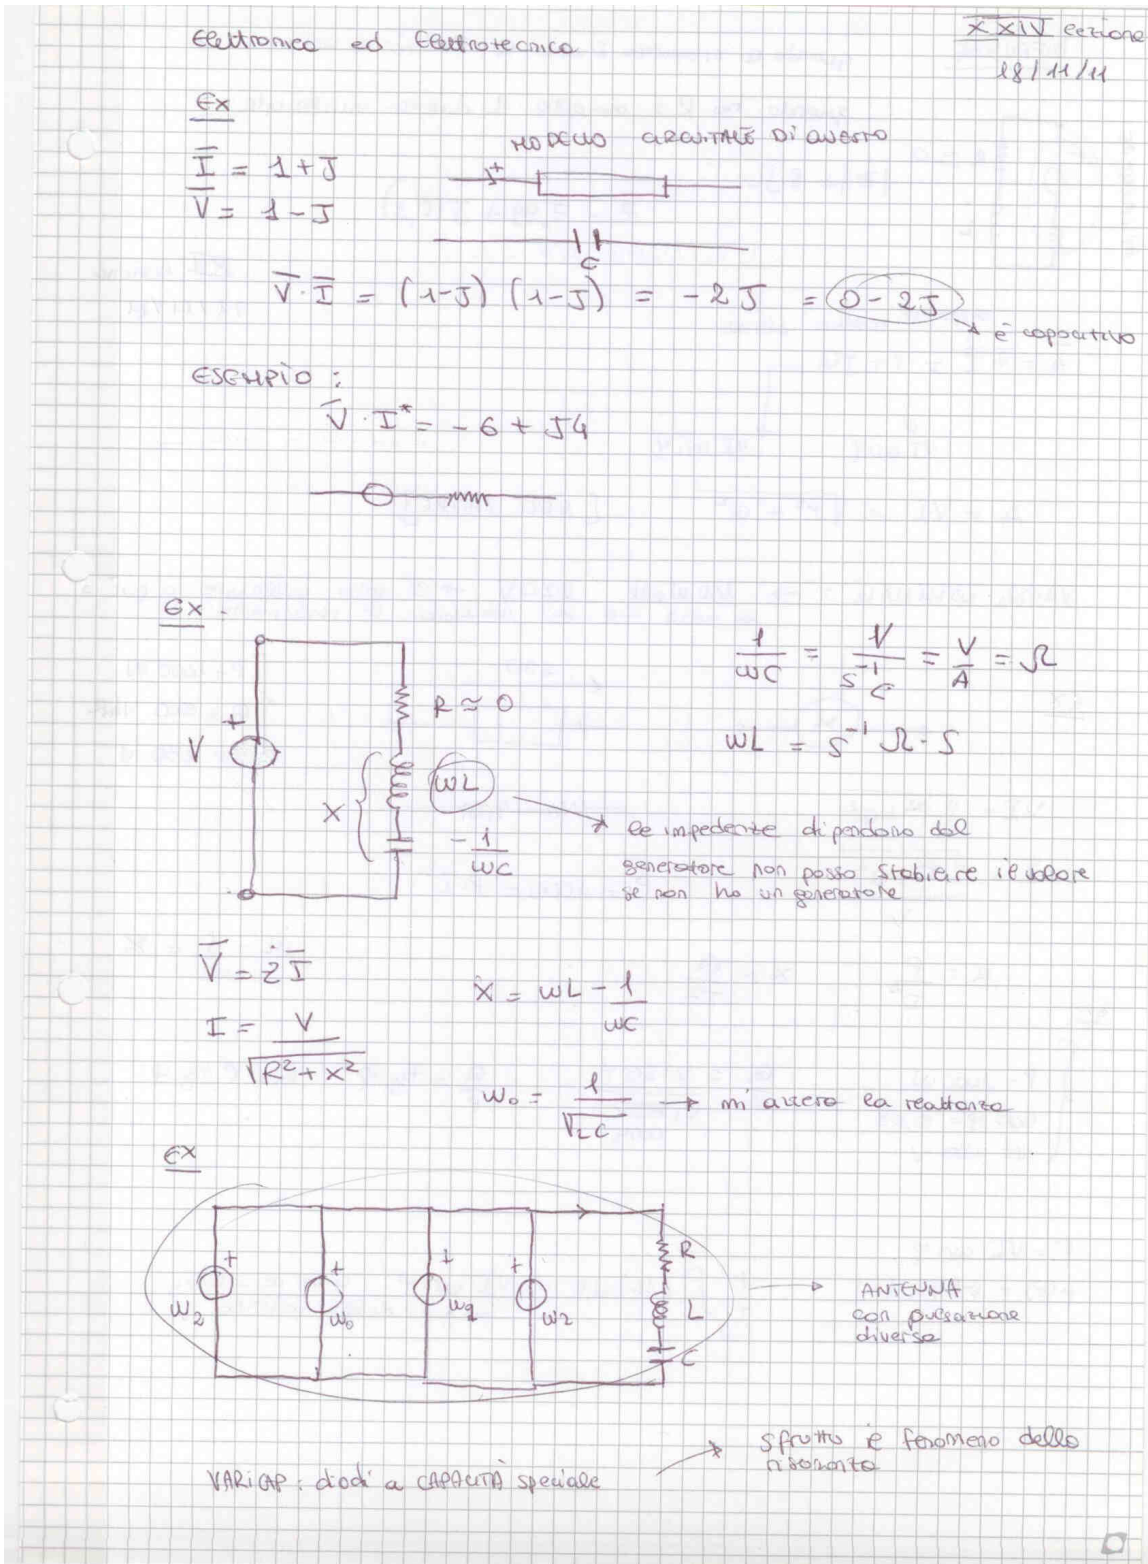 Elettronica ed Elettrotecnica
XXIV lezione
18/11/11
Ex
Ī = 1 + J
V̄ = 1 - J
MODELLO CIRCUITALE DI QUESTO
+
C
V̄ · Ī = (1-J) (1-J) = -2J = 0 - 2J
è capacitivo
ESEMPIO :
V̄ · I* = -6 + J4
Ex.
V
+
R ≃ 0
X
ωL
-1/ωC
1/ωC = V/s⁻¹C = V/A = Ω
ωL = s⁻¹ Ω · s
le impedenze dipendono dal
generatore non posso stabilire il valore
se non ho un generatore
V̄ = Ż Ī
I = V/√R² + X²
X = ωL - 1/ωC
ω₀ = 1/√LC → mi azzera la reattanza
Ex
+
ω₂
+
ω₀
+
+
R
L
C
ANTENNA
con pulsazione
diversa
VARICAP : diodi a CAPACITÀ speciale
sfrutto il fenomeno della
risonanza